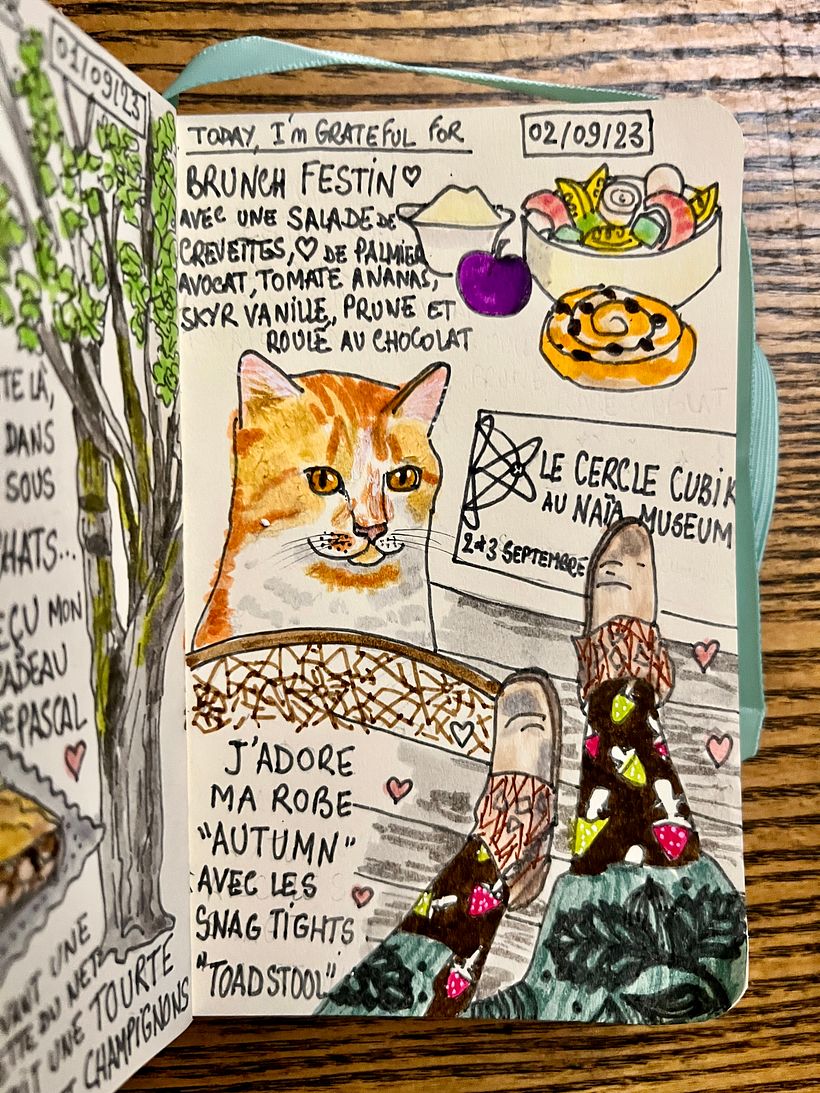 01/09/23
TE LÀ,
DANS
SOUS
HATS...
EÇU MON
CADEAU
DE PASCAL
VANT UNE
ETTE DU NET
UNE TOURTE
CHAMPIGNONS
TODAY, I'm GRATEFUL FOR
02/09/23
BRUNCH FESTIN♡
AVEC UNE SALADE DE
CREVETTES, ♡ DE PALMIER
AVOCAT, TOMATE ANANAS,
SKYR VANILLE, PRUNE ET
ROULÉ AU CHOCOLAT
LE CERCLE CUBIK
AU NAÏA MUSEUM
2&3 SEPTEMBRE
J'ADORE
MA ROBE
"AUTUMN"
AVEC LES
SNAG TIGHTS
"TOADSTOOL"